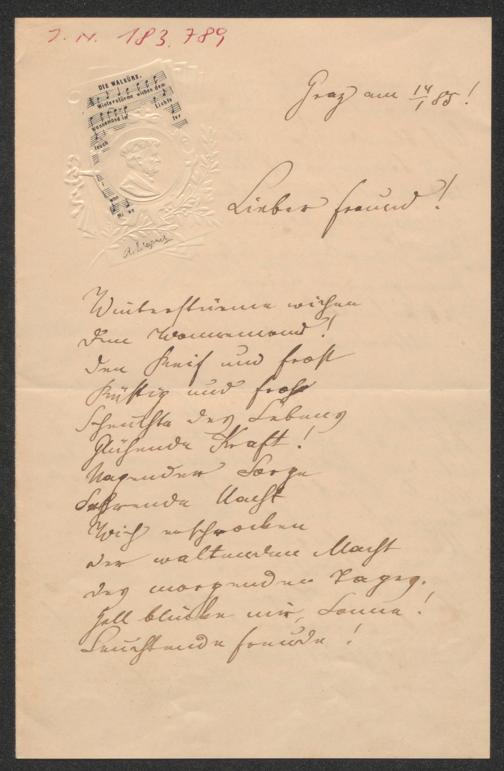 I. N. 183.789
DIE WALKÜRE.
Winterstürme wichen dem
Wonnemond
Lichte
leuch
R. Wagner
Graz am 14/1 85!
Lieber Freund!
Winterstürme wichen
Dem Wonnemond!
Den Reif und Frost
Rüstig und froh
Scheuchte des Lebens
Glühende Kraft!
Nagender Sorge
Zehrende Macht
Wich erschrocken
der waltenden Macht
des morgenden Tages.
Hell blinke mir, Sonne!
Leuchtende Freude!